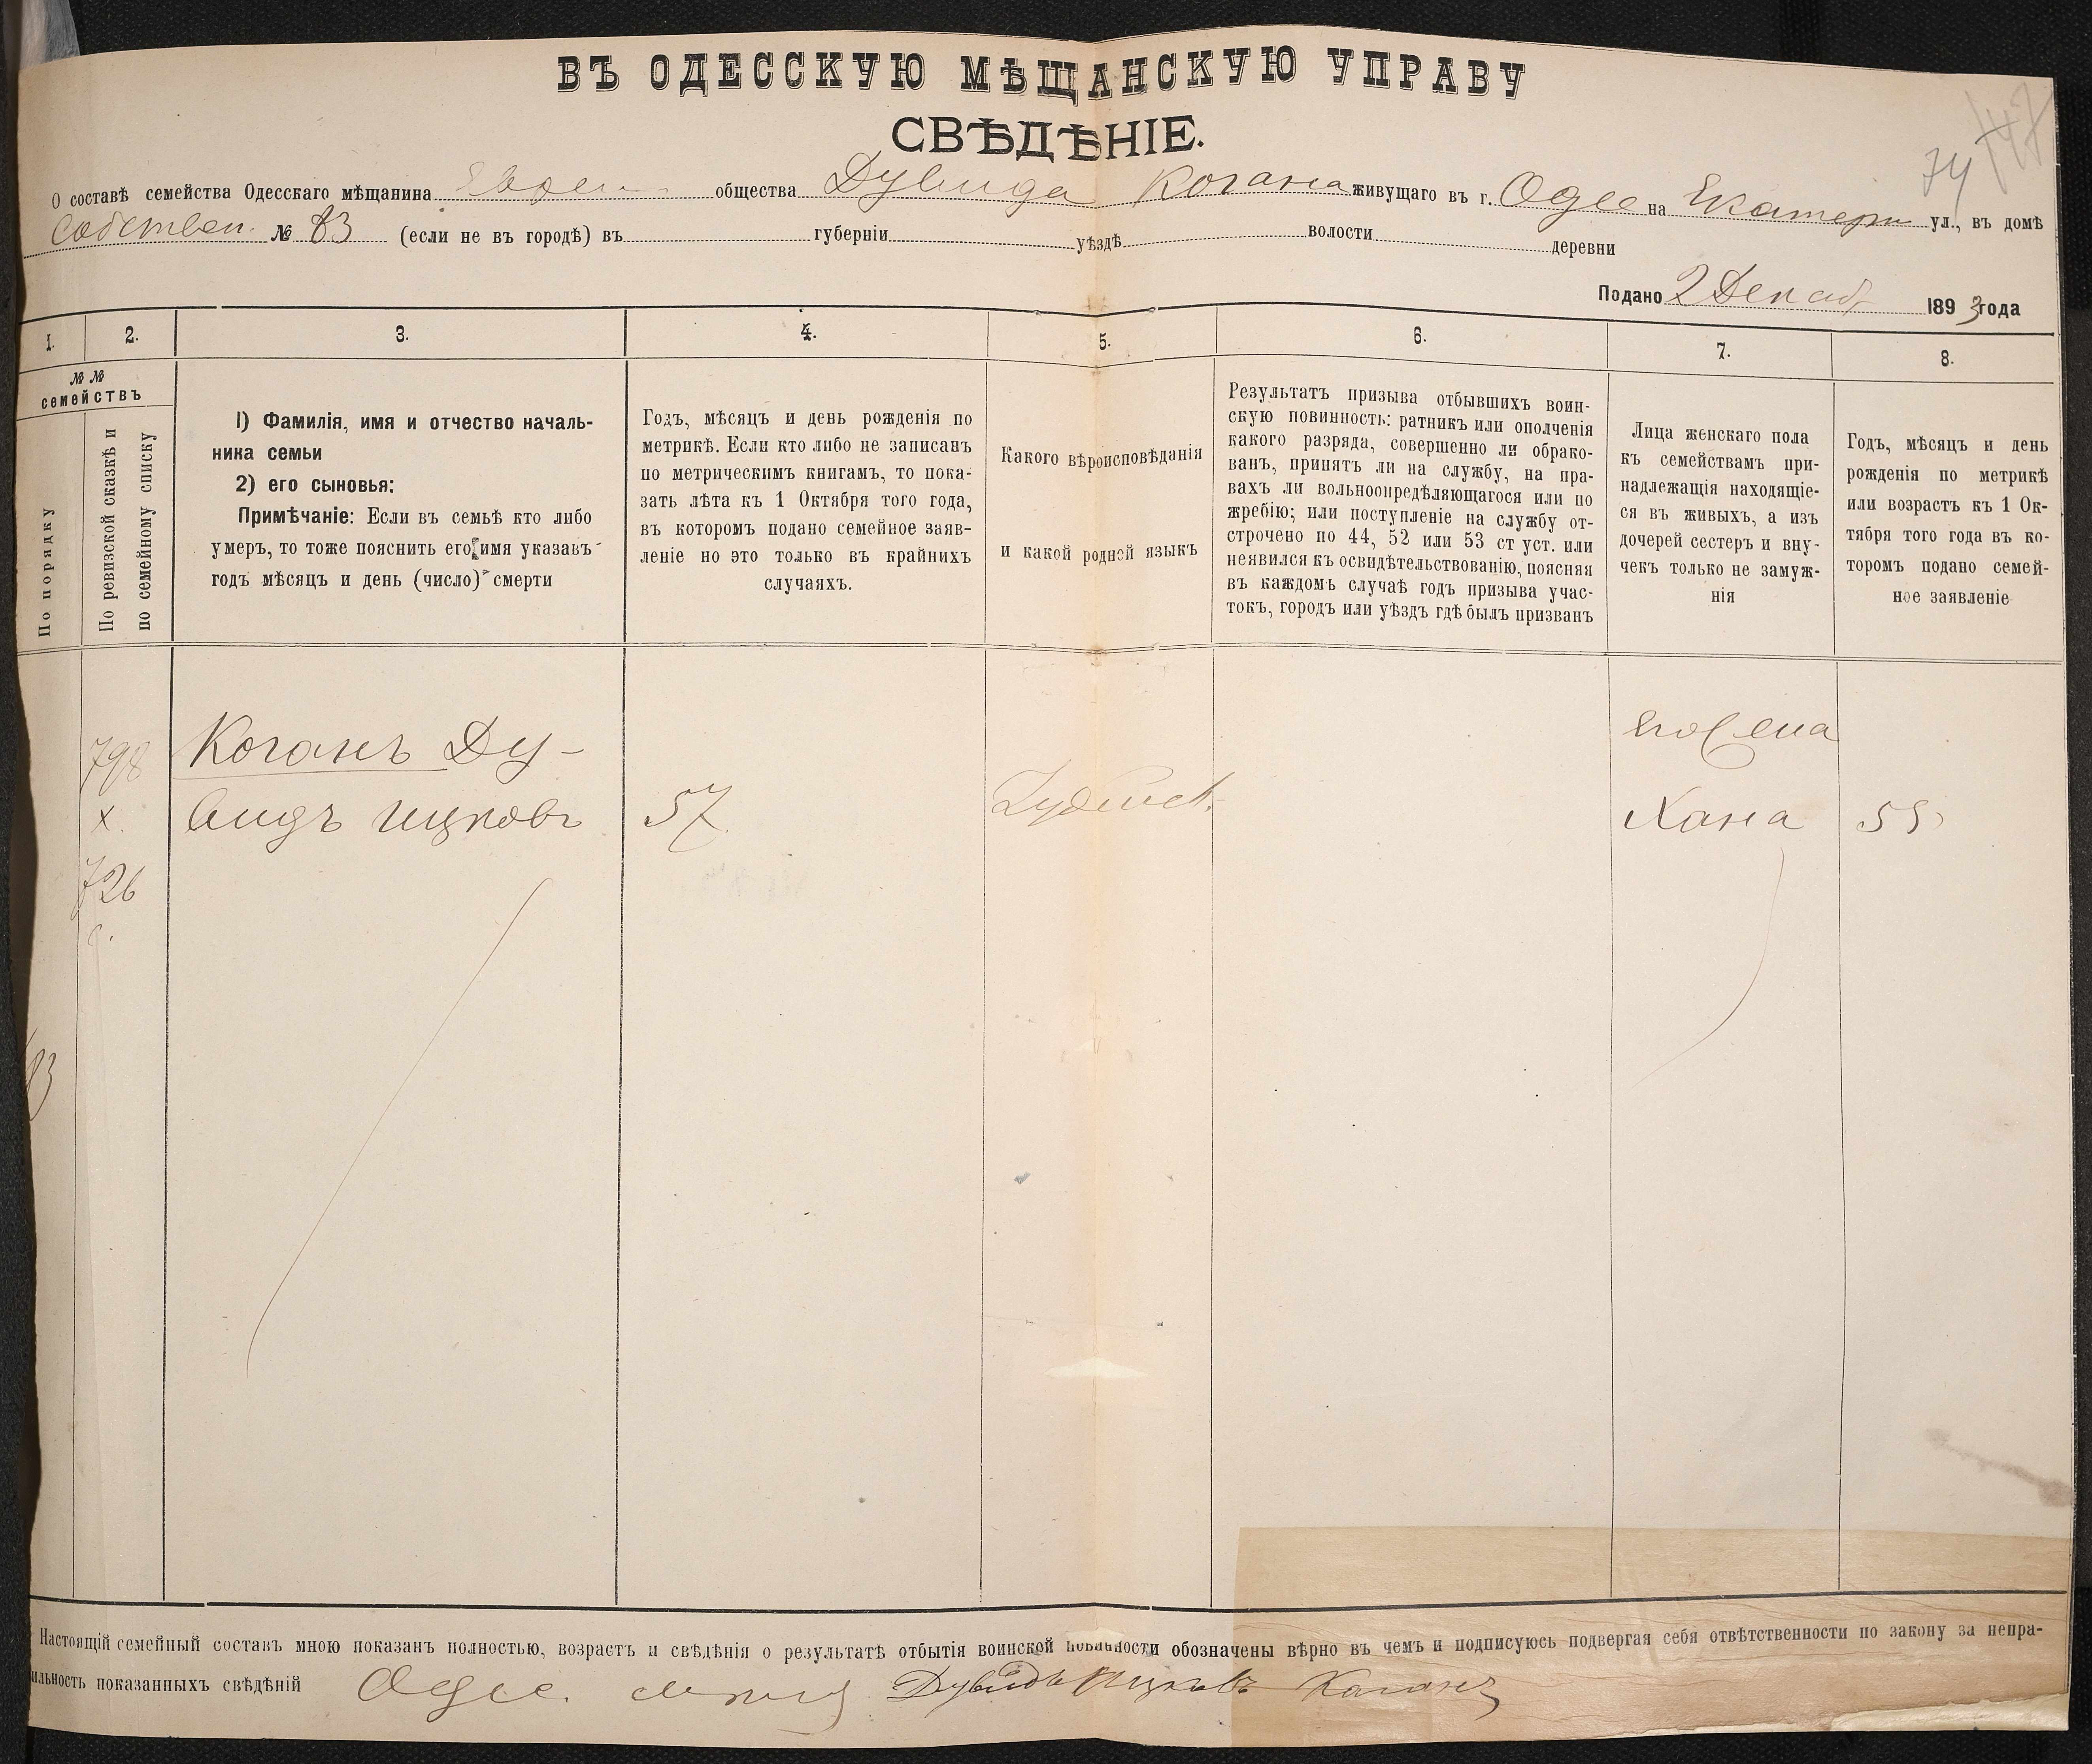 ВЪ ОДЕССКУЮ МѢЩАНСКУЮ УПРАВУ
СВѢДѢНІЕ.
74 147
О составѣ семейства Одесскаго мѣщанина Еврей общества Дувида Когана живущаго въ г. Одес на Екатери ул., въ домѣ
Собствен. № 83 (если не въ городѣ) въ губерніи уѣздѣ волости деревни
Подано 2 Декаб 1893 года
1. 2. 3. 4. 5. 6. 7. 8.
№ №
семействъ
По порядку
По ревизской сказкѣ и
по семейному списку
1) Фамилія, имя и отчество началь-
ника семьи
2) его сыновья:
Примѣчаніе: Если въ семьѣ кто либо
умеръ, то тоже пояснить его имя указавъ
годъ мѣсяцъ и день (число) смерти
Годъ, мѣсяцъ и день рожденія по
метрикѣ. Если кто либо не записанъ
по метрическимъ книгамъ, то пока-
зать лѣта къ 1 Октября того года,
въ которомъ подано семейное заяв-
леніе но это только въ крайнихъ
случаяхъ.
Какого вѣроисповѣданія
и какой родной языкъ
Результатъ призыва отбывшихъ воин-
скую повинность: ратникъ или ополченія
какого разряда, совершенно ли обрако-
ванъ, принятъ ли на службу, на пра-
вахъ ли вольноопредѣляющагося или по
жребію; или поступленіе на службу от-
строчено по 44, 52 или 53 ст уст. или
неявился къ освидѣтельствованію, поясняя
въ каждомъ случаѣ годъ призыва учас-
токъ, городъ или уѣздъ гдѣ былъ призванъ
Лица женскаго пола
къ семействамъ при-
надлежащія находящіе-
ся въ живыхъ, а изъ
дочерей сестеръ и вну-
чекъ только не замуж-
нія
Годъ, мѣсяцъ и день
рожденія по метрикѣ
или возрастъ къ 1 Ок-
тября того года въ ко-
торомъ подано семей-
ное заявленіе
798
х.
726
с.
Коганъ Ду-
видъ Ицковъ
57
Іудейск.
жена
Хана
55
Настоящій семейный составъ мною показанъ полностью, возрастъ и свѣдѣнія о результатѣ отбытія воинской повинности обозначены вѣрно въ чемъ и подписуюсь подвергая себя отвѣтственности по закону за непра-
ильность показанныхъ свѣдѣній Одес. Дувидъ Ицковъ Каганъ